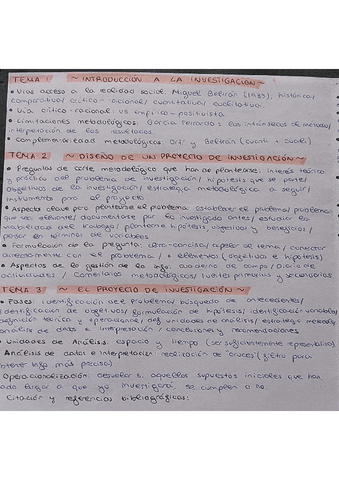 TEMA 1 ~ INTRODUCCIÓN A LA INVESTIGACIÓN ~
• Vías acceso a la realidad social: Miguel Beltrán (1985), histórica/
comparativa/ crítico-racional/ cuantitativa/ cualitativa.
• Vía crítico-racional vs empírico-positivista
• Limitaciones metodológicas: García Ferrando: los intrínsecos al método/
interpretación de los resultados.
• Complementariedad metodológica: Ortí y Beltrán (cuanti + cuali)
TEMA 2 ~ DISEÑO DE UN PROYECTO DE INVESTIGACIÓN ~
• Preguntas de corte metodológico que han de plantearse: interés teórico
y práctico del problema de investigación / hipótesis que se parte/
objetivos de la investigación/ estrategia metodológica a seguir/
instrumento para el proyecto
• Aspecto clave para plantearse el problema: establecer el problema/ problema
que sea relevante/ documentarse por lo investigado antes/ estudiar la
viabilidad del trabajo/ plantearse hipótesis objetivos y beneficios /
pensar en términos de variables
• Formulación de la pregunta: claro-concisa/ tema/ conectar
directamente con el problema/ + elementos (objetivos e hipótesis)
• Aspectos de la gestión de la info: cuaderno de campo/ Diario de
actividades / Comentarios metodológicos/ fuentes primarias y secundarias
TEMA 3 ~ EL PROYECTO DE INVESTIGACIÓN ~
• Fases: identificación del Problema/ búsqueda de antecedentes/
identificación de objetivos/ formulación de hipótesis/ identificación variables/
definición teórica y operacional/ def unidades de análisis/ estrategia metodo/
análisis de datos e interpretación / conclusiones y recomendaciones
• Unidades de Análisis: espacio y tiempo (ser suficientemente representativo)
Análisis de datos e interpretación: realización de "cruces" (filtro para
info más precisa)
Operacionalización: desvelar si aquellos supuestos iniciales que han
dado lugar a que yo investigara, se cumplen o no.
Citación y referencias bibliográficas: